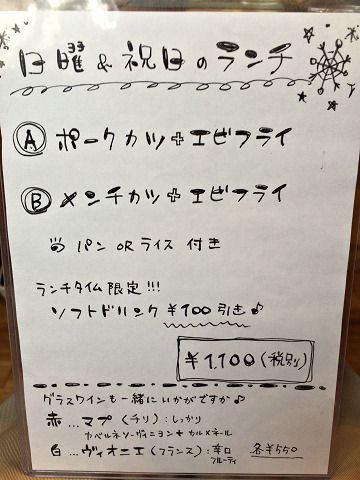 日曜&祝日のランチ
Ⓐ ポークカツ+エビフライ
Ⓑ メンチカツ+エビフライ
パン ORライス 付き
ランチタイム限定!!!
ソフトドリンク ¥100引き♪
¥1,100(税別)
グラスワインも一緒にいかがですか♪
赤...マプ(チリ):しっかり
カベルネソーヴィニヨン+カルメネール
白...ヴィオニエ(フランス):辛口 各¥550
フルーティ